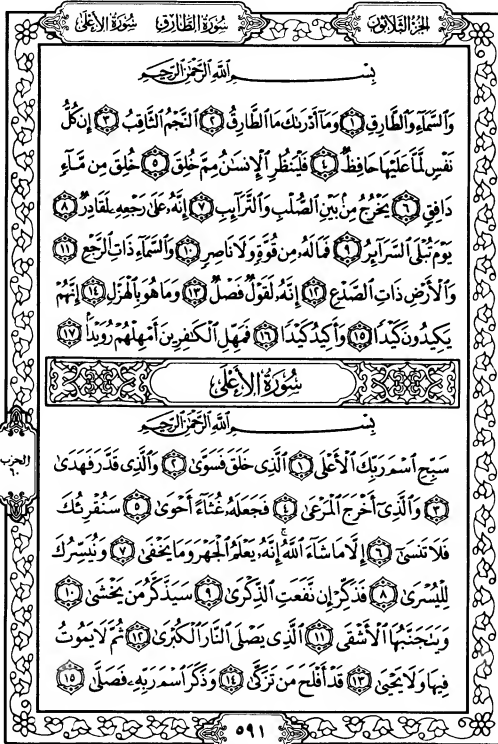 سُورَةُ الأَعْلَى
سُورَةُ الطَّارِقِ
الجُزْءُ الثَّلَاثُونَ
بِسْمِ ٱللَّهِ ٱلرَّحْمَٰنِ ٱلرَّحِيمِ
وَٱلسَّمَآءِ وَٱلطَّارِقِ ١ وَمَآ أَدْرَىٰكَ مَا ٱلطَّارِقُ ٢ ٱلنَّجْمُ ٱلثَّاقِبُ ٣ إِن كُلُّ
نَفْسٍ لَّمَّا عَلَيْهَا حَافِظٌ ٤ فَلْيَنظُرِ ٱلْإِنسَٰنُ مِمَّ خُلِقَ ٥ خُلِقَ مِن مَّآءٍ
دَافِقٍ ٦ يَخْرُجُ مِنۢ بَيْنِ ٱلصُّلْبِ وَٱلتَّرَآئِبِ ٧ إِنَّهُۥ عَلَىٰ رَجْعِهِۦ لَقَادِرٌ ٨
يَوْمَ تُبْلَى ٱلسَّرَآئِرُ ٩ فَمَا لَهُۥ مِن قُوَّةٍ وَلَا نَاصِرٍ ١٠ وَٱلسَّمَآءِ ذَاتِ ٱلرَّجْعِ ١١
وَٱلْأَرْضِ ذَاتِ ٱلصَّدْعِ ١٢ إِنَّهُۥ لَقَوْلٌ فَصْلٌ ١٣ وَمَا هُوَ بِٱلْهَزْلِ ١٤ إِنَّهُمْ
يَكِيدُونَ كَيْدًا ١٥ وَأَكِيدُ كَيْدًا ١٦ فَمَهِّلِ ٱلْكَٰفِرِينَ أَمْهِلْهُمْ رُوَيْدًۢا ١٧
سُورَةُ الأَعْلَى
بِسْمِ ٱللَّهِ ٱلرَّحْمَٰنِ ٱلرَّحِيمِ
سَبِّحِ ٱسْمَ رَبِّكَ ٱلْأَعْلَى ١ ٱلَّذِى خَلَقَ فَسَوَّىٰ ٢ وَٱلَّذِى قَدَّرَ فَهَدَىٰ
٣ وَٱلَّذِىٓ أَخْرَجَ ٱلْمَرْعَىٰ ٤ فَجَعَلَهُۥ غُثَآءً أَحْوَىٰ ٥ سَنُقْرِئُكَ
فَلَا تَنسَىٰٓ ٦ إِلَّا مَا شَآءَ ٱللَّهُۚ إِنَّهُۥ يَعْلَمُ ٱلْجَهْرَ وَمَا يَخْفَىٰ ٧ وَنُيَسِّرُكَ
لِلْيُسْرَىٰ ٨ فَذَكِّرْ إِن نَّفَعَتِ ٱلذِّكْرَىٰ ٩ سَيَذَّكَّرُ مَن يَخْشَىٰ ١٠
وَيَتَجَنَّبُهَا ٱلْأَشْقَى ١١ ٱلَّذِى يَصْلَى ٱلنَّارَ ٱلْكُبْرَىٰ ١٢ ثُمَّ لَا يَمُوتُ
فِيهَا وَلَا يَحْيَىٰ ١٣ قَدْ أَفْلَحَ مَن تَزَكَّىٰ ١٤ وَذَكَرَ ٱسْمَ رَبِّهِۦ فَصَلَّىٰ ١٥
الحزب
٦٠
٥٩١